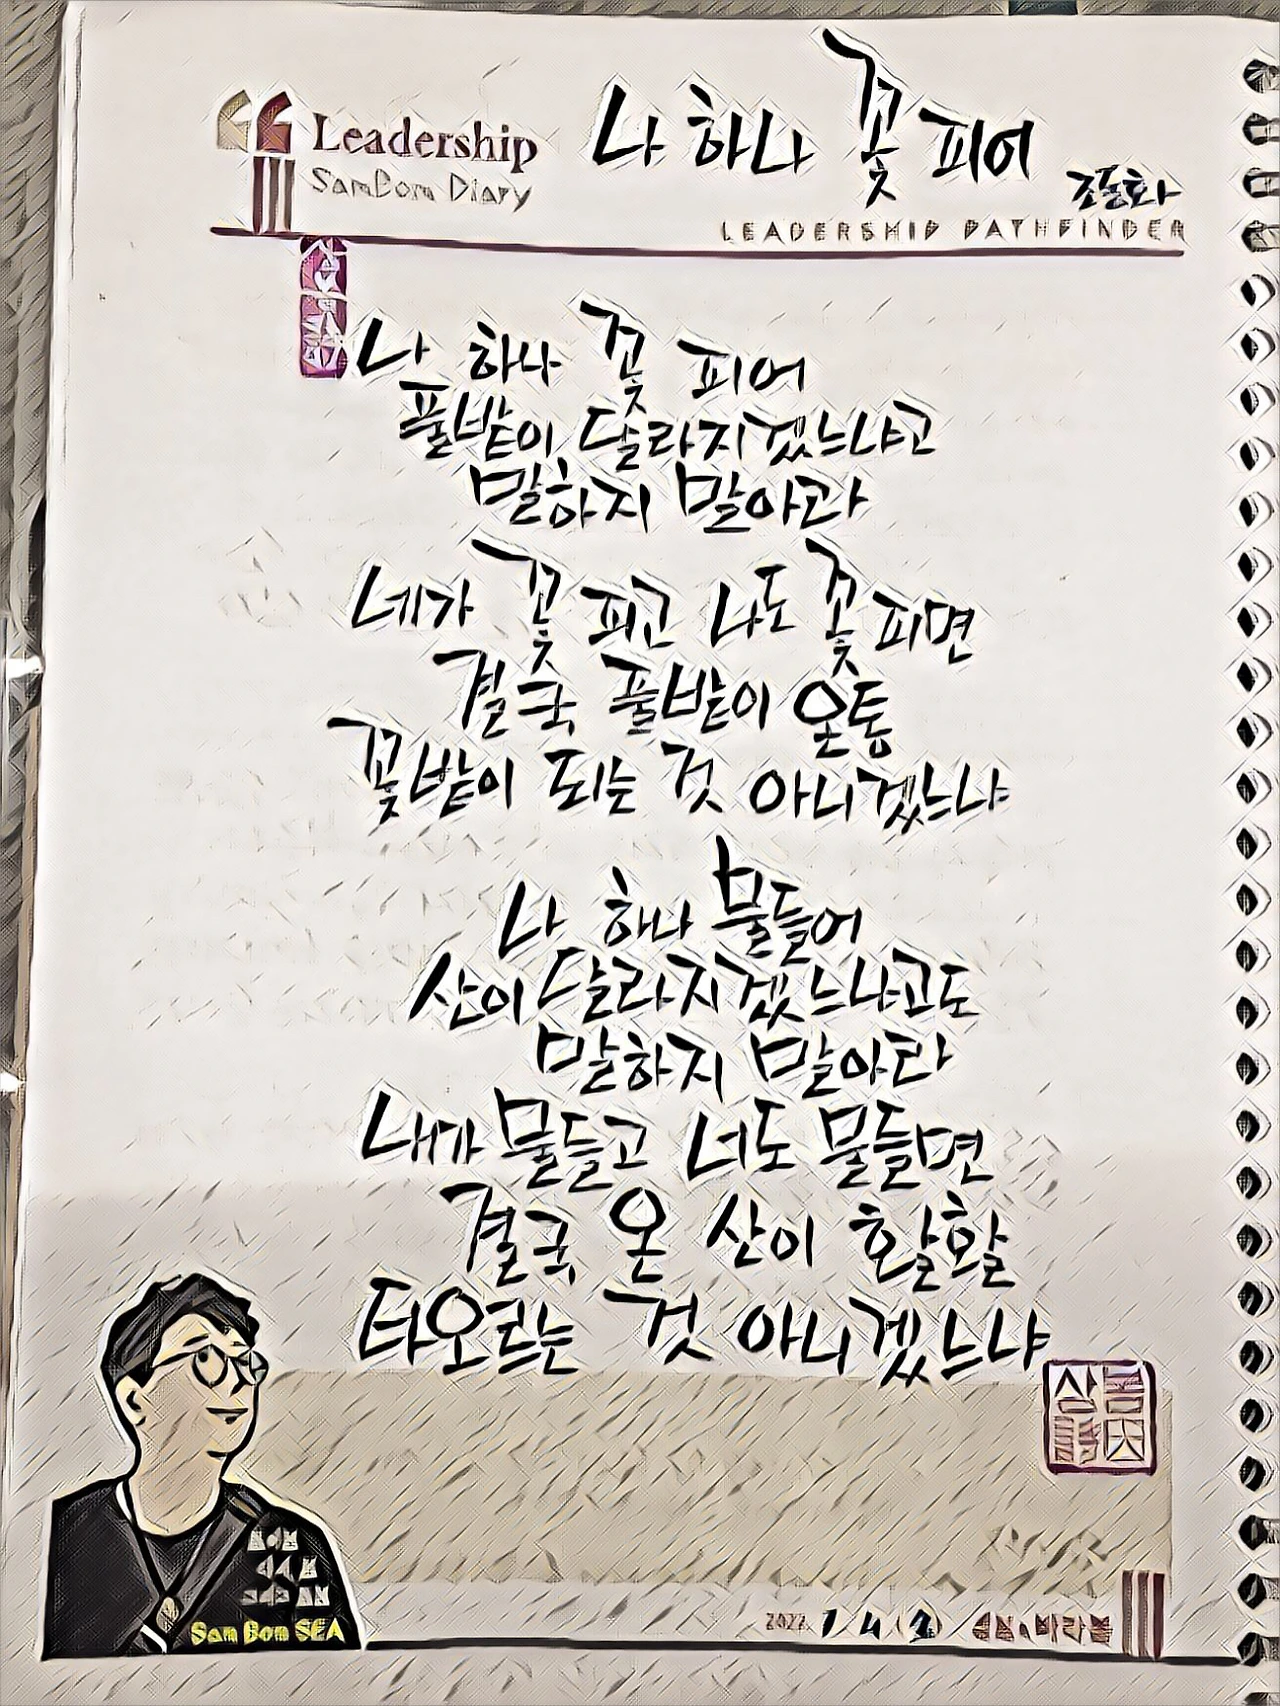 Leadership
SamBom Diary
나 하나 꽃 피어
조동화
LEADERSHIP PATHFINDER
나 하나 꽃 피어
풀밭이 달라지겠느냐고
말하지 말아라
네가 꽃 피고 나도 꽃 피면
결국 풀밭이 온통
꽃밭이 되는 것 아니겠느냐
나 하나 물들어
산이 달라지겠느냐고도
말하지 말아라
내가 물들고 너도 물들면
결국 온 산이 활활
타오르는 것 아니겠느냐
Sam Bom SEA
2022. 1/4(화)/